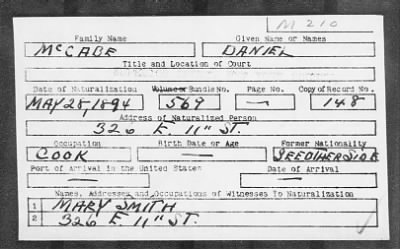 M 210
Family Name Given Name or Names
McCABE DANIEL
Title and Location of Court
Date of Naturalization Volume or Bundle No. Page No. Copy of Record No.
MAY 28, 1894 569 — 148
Address of Naturalized Person
326 E. 11" ST.
Occupation Birth Date or Age Former Nationality
COOK — SEE OTHER SIDE
Port of Arrival in the United States Date of Arrival
— —
Names, Addresses and Occupations of Witnesses To Naturalization
1 MARY SMITH
2 326 E. 11" ST.